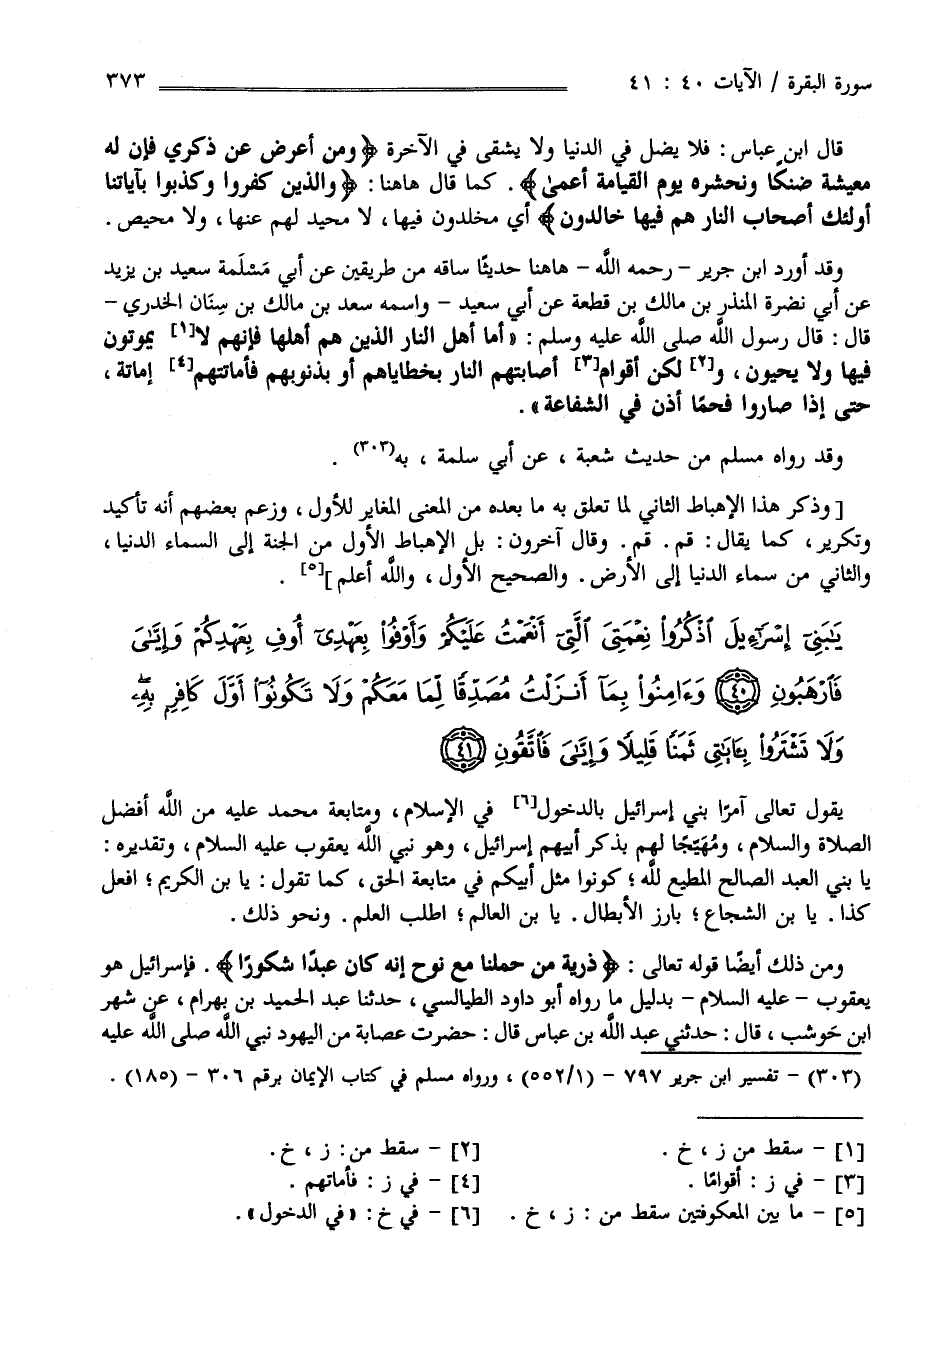 سورة البقرة / الآيات ٤٠ : ٤١ ٣٧٣
قال ابن عباس : فلا يضل في الدنيا ولا يشقى في الآخرة ﴿ ومن أعرض عن ذكري فإن له
معيشة ضنكًا ونحشره يوم القيامة أعمىٰ ﴾ . كما قال هاهنا : ﴿ والذين كفروا وكذبوا بآياتنا
أولئك أصحاب النار هم فيها خالدون ﴾ أي مخلدون فيها ، لا محيد لهم عنها ، ولا محيص .
وقد أورد ابن جرير – رحمه اللَّه – هاهنا حديثًا ساقه من طريقين عن أبي مَسْلَمة سعيد بن يزيد
عن أبي نضرة المنذر بن مالك بن قطعة عن أبي سعيد – واسمه سعد بن مالك بن سِنَان الخدري –
قال : قال رسول اللَّه صلى اللَّه عليه وسلم : « أما أهل النار الذين هم أهلها فإنهم لا[١] يموتون
فيها ولا يحيون ، و[٢] لكن أقوام[٣] أصابتهم النار بخطاياهم أو بذنوبهم فأماتتهم[٤] إماتة ،
حتى إذا صاروا فحمًا أذن في الشفاعة » .
وقد رواه مسلم من حديث شعبة ، عن أبي سلمة ، به(٣٠٣) .
[ وذكر هذا الإهباط الثاني لما تعلق به ما بعده من المعنى المغاير للأول ، وزعم بعضهم أنه تأكيد
وتكرير ، كما يقال : قم . قم . وقال آخرون : بل الإهباط الأول من الجنة إلى السماء الدنيا ،
والثاني من سماء الدنيا إلى الأرض . والصحيح الأول ، واللَّه أعلم ][٥] .
يَـٰبَنِىٓ إِسْرَٰٓءِيلَ ٱذْكُرُوا۟ نِعْمَتِىَ ٱلَّتِىٓ أَنْعَمْتُ عَلَيْكُمْ وَأَوْفُوا۟ بِعَهْدِىٓ أُوفِ بِعَهْدِكُمْ وَإِيَّـٰىَ
فَٱرْهَبُونِ ﴿٤٠﴾ وَءَامِنُوا۟ بِمَآ أَنزَلْتُ مُصَدِّقًا لِّمَا مَعَكُمْ وَلَا تَكُونُوٓا۟ أَوَّلَ كَافِرٍۭ بِهِۦ
وَلَا تَشْتَرُوا۟ بِـَٔايَـٰتِى ثَمَنًا قَلِيلًا وَإِيَّـٰىَ فَٱتَّقُونِ ﴿٤١﴾
يقول تعالى آمرًا بني إسرائيل بالدخول[٦] في الإسلام ، ومتابعة محمد عليه من اللَّه أفضل
الصلاة والسلام ، ومُهَيّجًا لهم بذكر أبيهم إسرائيل ، وهو نبي اللَّه يعقوب عليه السلام ، وتقديره :
يا بني العبد الصالح المطيع للَّه ؛ كونوا مثل أبيكم في متابعة الحق ، كما تقول : يا بن الكريم ؛ افعل
كذا . يا بن الشجاع ؛ بارز الأبطال . يا بن العالم ؛ اطلب العلم . ونحو ذلك .
ومن ذلك أيضًا قوله تعالى : ﴿ ذرية من حملنا مع نوح إنه كان عبدًا شكورًا ﴾ . فإسرائيل هو
يعقوب – عليه السلام – بدليل ما رواه أبو داود الطيالسي ، حدثنا عبد الحميد بن بهرام ، عن شهر
ابن حَوشب ، قال : حدثني عبد اللَّه بن عباس قال : حضرت عصابة من اليهود نبي اللَّه صلى اللَّه عليه
(٣٠٣) – تفسير ابن جرير ٧٩٧ – (٥٥٢/١) ، ورواه مسلم في كتاب الإيمان برقم ٣٠٦ – (١٨٥) .
[١] – سقط من ز ، خ . [٢] – سقط من : ز ، خ .
[٣] – في ز : أقوامًا . [٤] – في ز : فأماتهم .
[٥] – ما بين المعكوفتين سقط من : ز ، خ . [٦] – في خ : « في الدخول » .